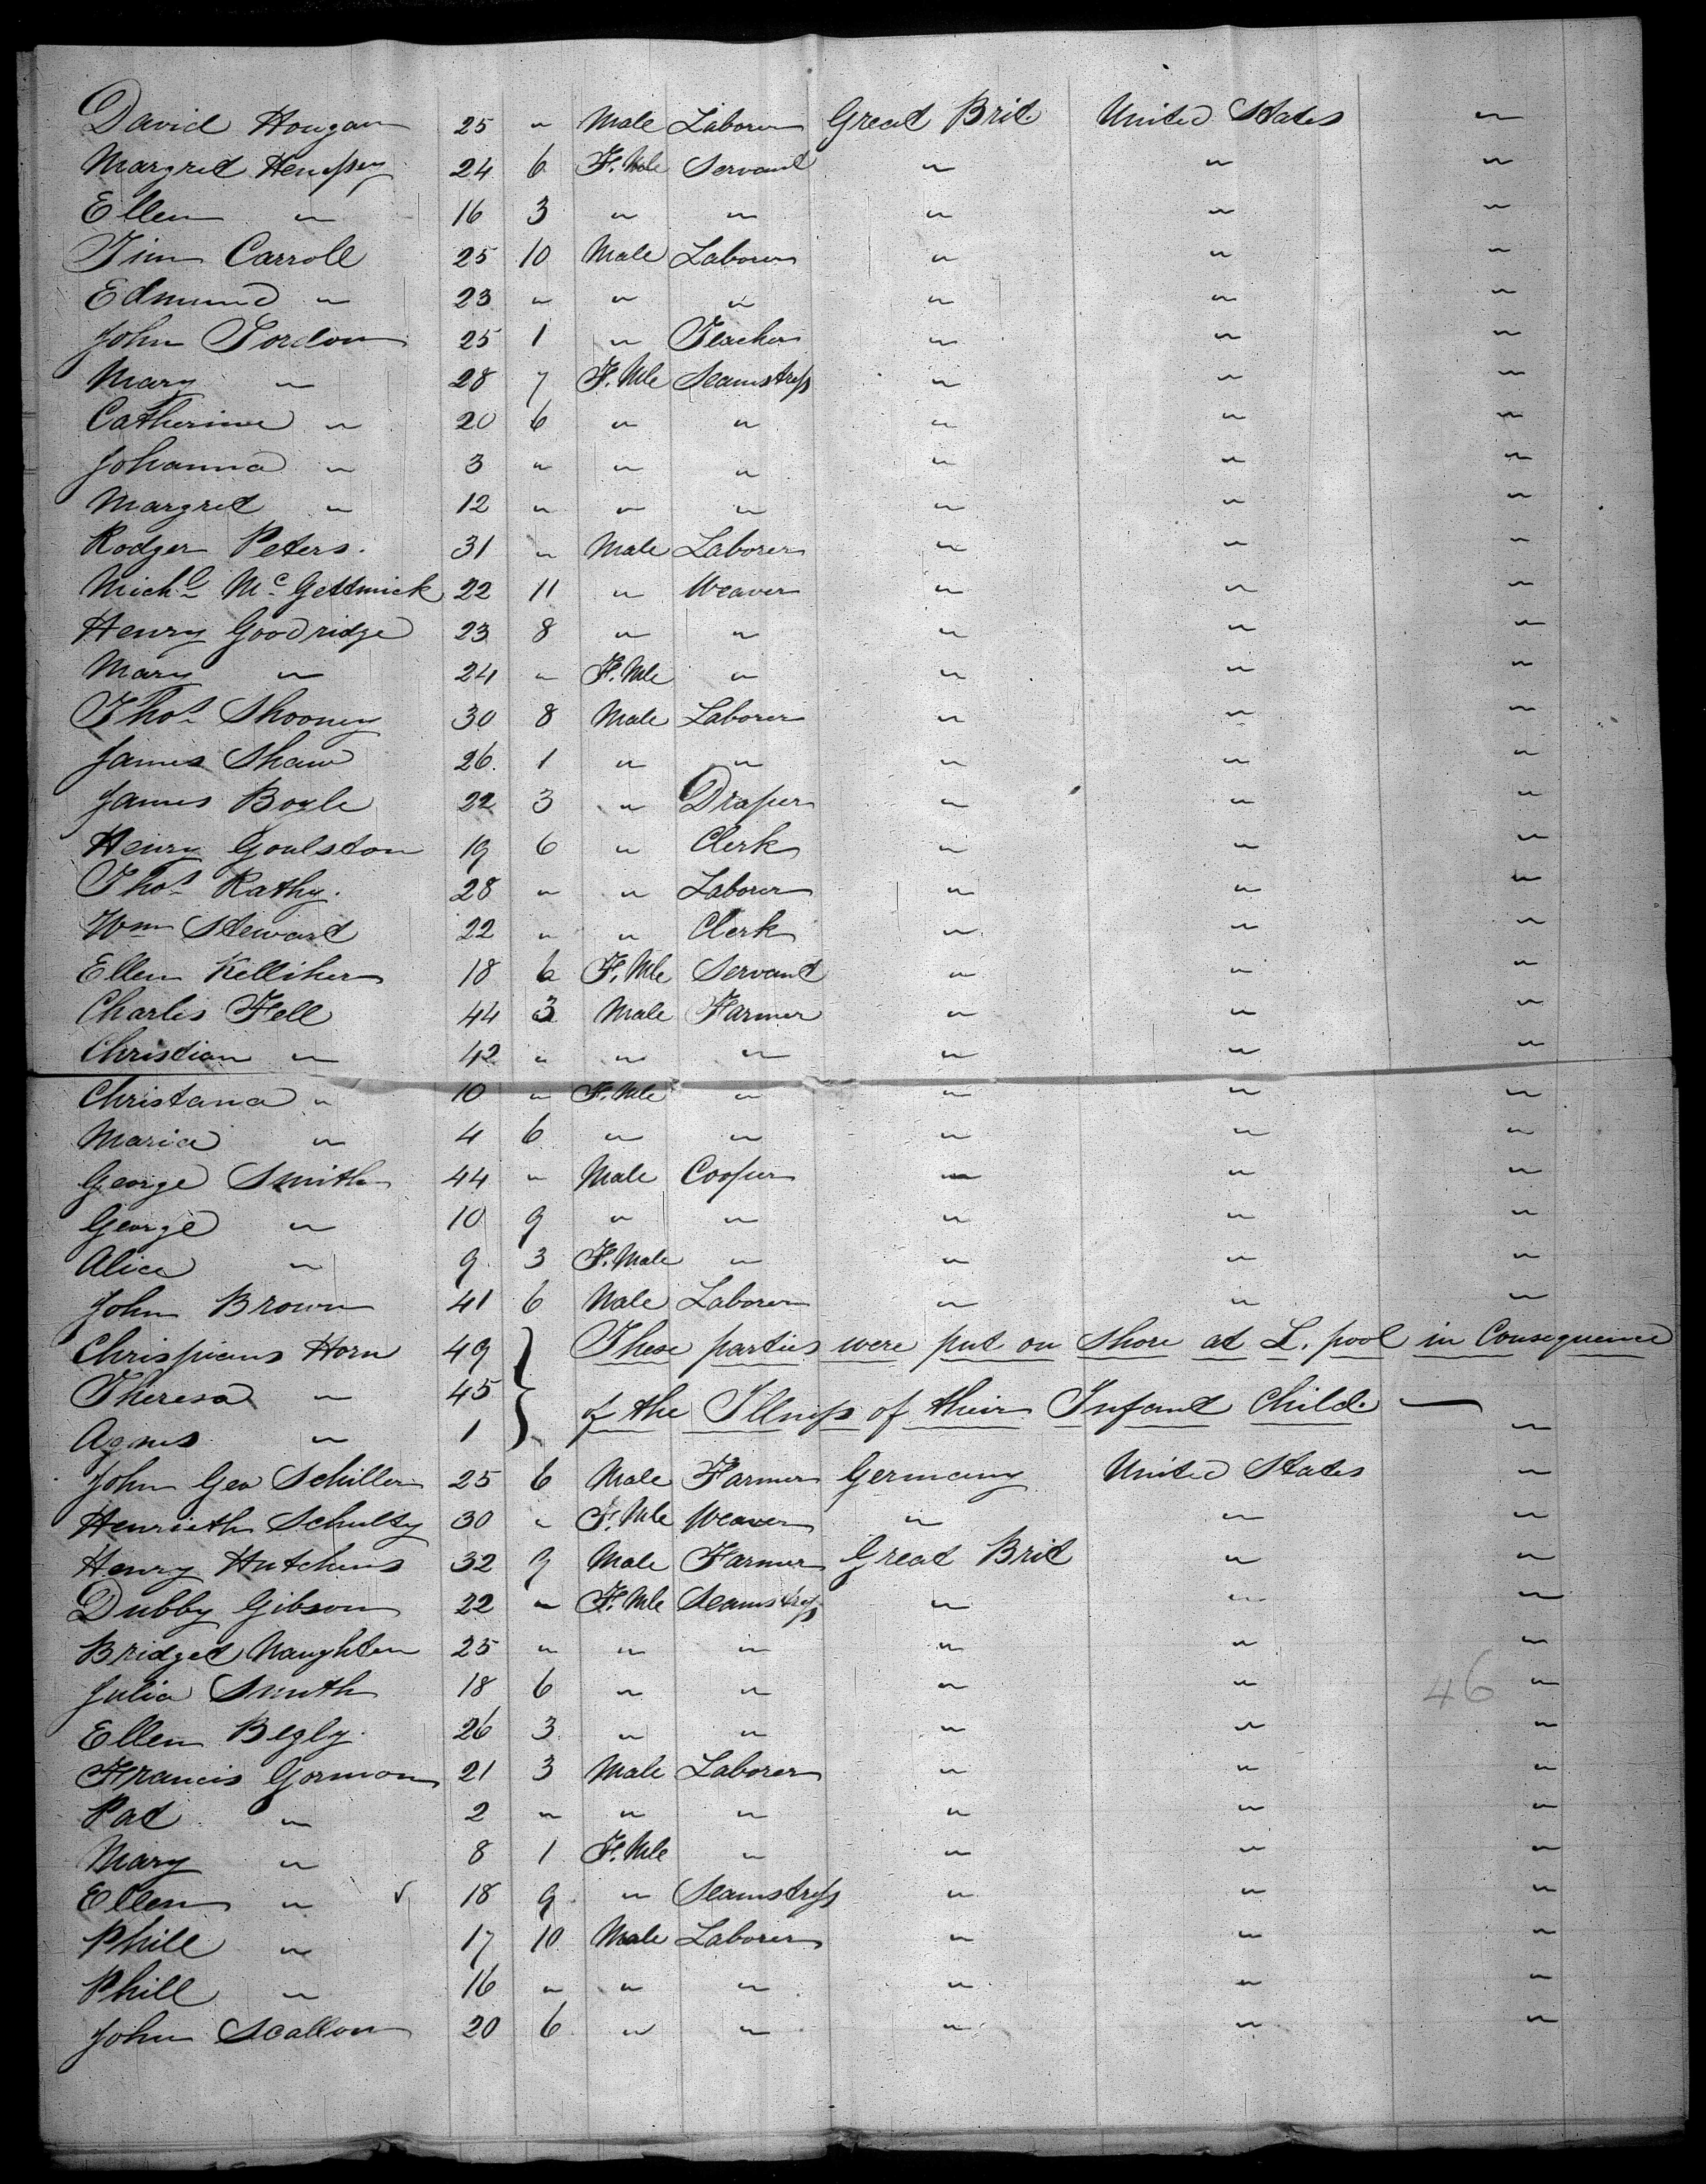 David Hougan 25 " Male Laborer Great Brit. United States "
Margret Hempsy 24 6 F. Male Servant " " "
Ellen " 16 3 " " " " "
Tim Carroll 25 10 Male Laborer " " "
Edmund " 23 " " " " " "
John Gordon 25 1 " Teacher " " "
Mary " 28 7 F. Mle Seamstress " " "
Catherine " 20 6 " " " " "
Johanna " 3 " " " " " "
Margret " 12 " " " " " "
Rodger Peters. 31 " Male Laborer " " "
Michl Mc Gettmick 22 11 " Weaver " " "
Henry Goodridge 23 8 " " " " "
Mary " 24 " F. Mle " " " "
Thos Shooney 30 8 Male Laborer " " "
James Shaw 26. 1 " " " " "
James Boyle 22 3 " Draper " " "
Henry Goulston 19 6 " Clerk " " "
Thos Rathy. 28 " " Laborer " " "
Wm Steward 22 " " Clerk " " "
Ellen Kelliher 18 6 F. Mle Servant " " "
Charles Fell 44 3 Male Farmer " " "
Christian " 42 " " " " " "
Christana " 10 " F. Mle " " " "
Maria " 4 6 " " " " "
George Smith 44 " Male Cooper " " "
George " 10 9 " " " " "
Alice " 9 3 F. Male " " " "
John Brown 41 6 Male Laborer " " "
Chrispians Horn 49 } These parties were put on Shore at L. pool in Consequence
Theresa " 45 } of the Illness of their Infant Child. —
Agnes " 1 } "
John Geo Schiller 25 6 Male Farmer Germany United States "
Henrieth Schultz 30 " F. Mle Weaver " " "
Henry Hutchins 32 9 Male Farmer Great Brit " "
Dubby Gibson 22 " F. Mle Seamstress " " "
Bridget Naughten 25 " " " " " "
Julia Smith 18 6 " " " " 46 "
Ellen Begly. 26 3 " " " " "
Francis Gorman 21 3 Male Laborer " " "
Pat " 2 " " " " " "
Mary " 8 1 F. Mle " " " "
Ellen " 18 9 " Seamstress " " "
Phill " 17 10 Male Laborer " " "
Phill " 16 " " " " " "
John Scallon 20 6 " " " " "